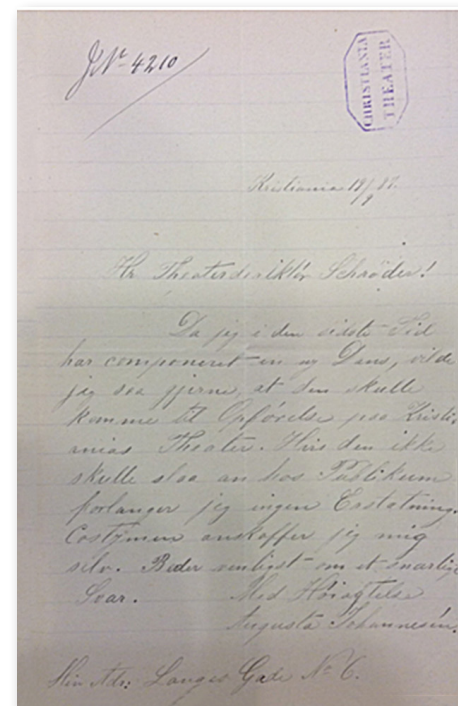 J№ 4210
CHRISTIANIA
THEATER
Kristiania 19/9 87.
Hr Theaterdirektør Schrøder!
Da jeg i den sidste Tid
har componeret en ny Dans, vilde
jeg saa gjerne, at den skulle
komme til Opførelse paa Kristi,
anias Theater. Hvis den ikke
skulle slaa an hos Publikum
forlanger jeg ingen Erstatning.
Costymer anskaffer jeg mig
selv. Beder venligst om et snarligt
Svar. Med Høiagtelse
Augusta Johannesén.
Min Adr: Langes Gade № 6.